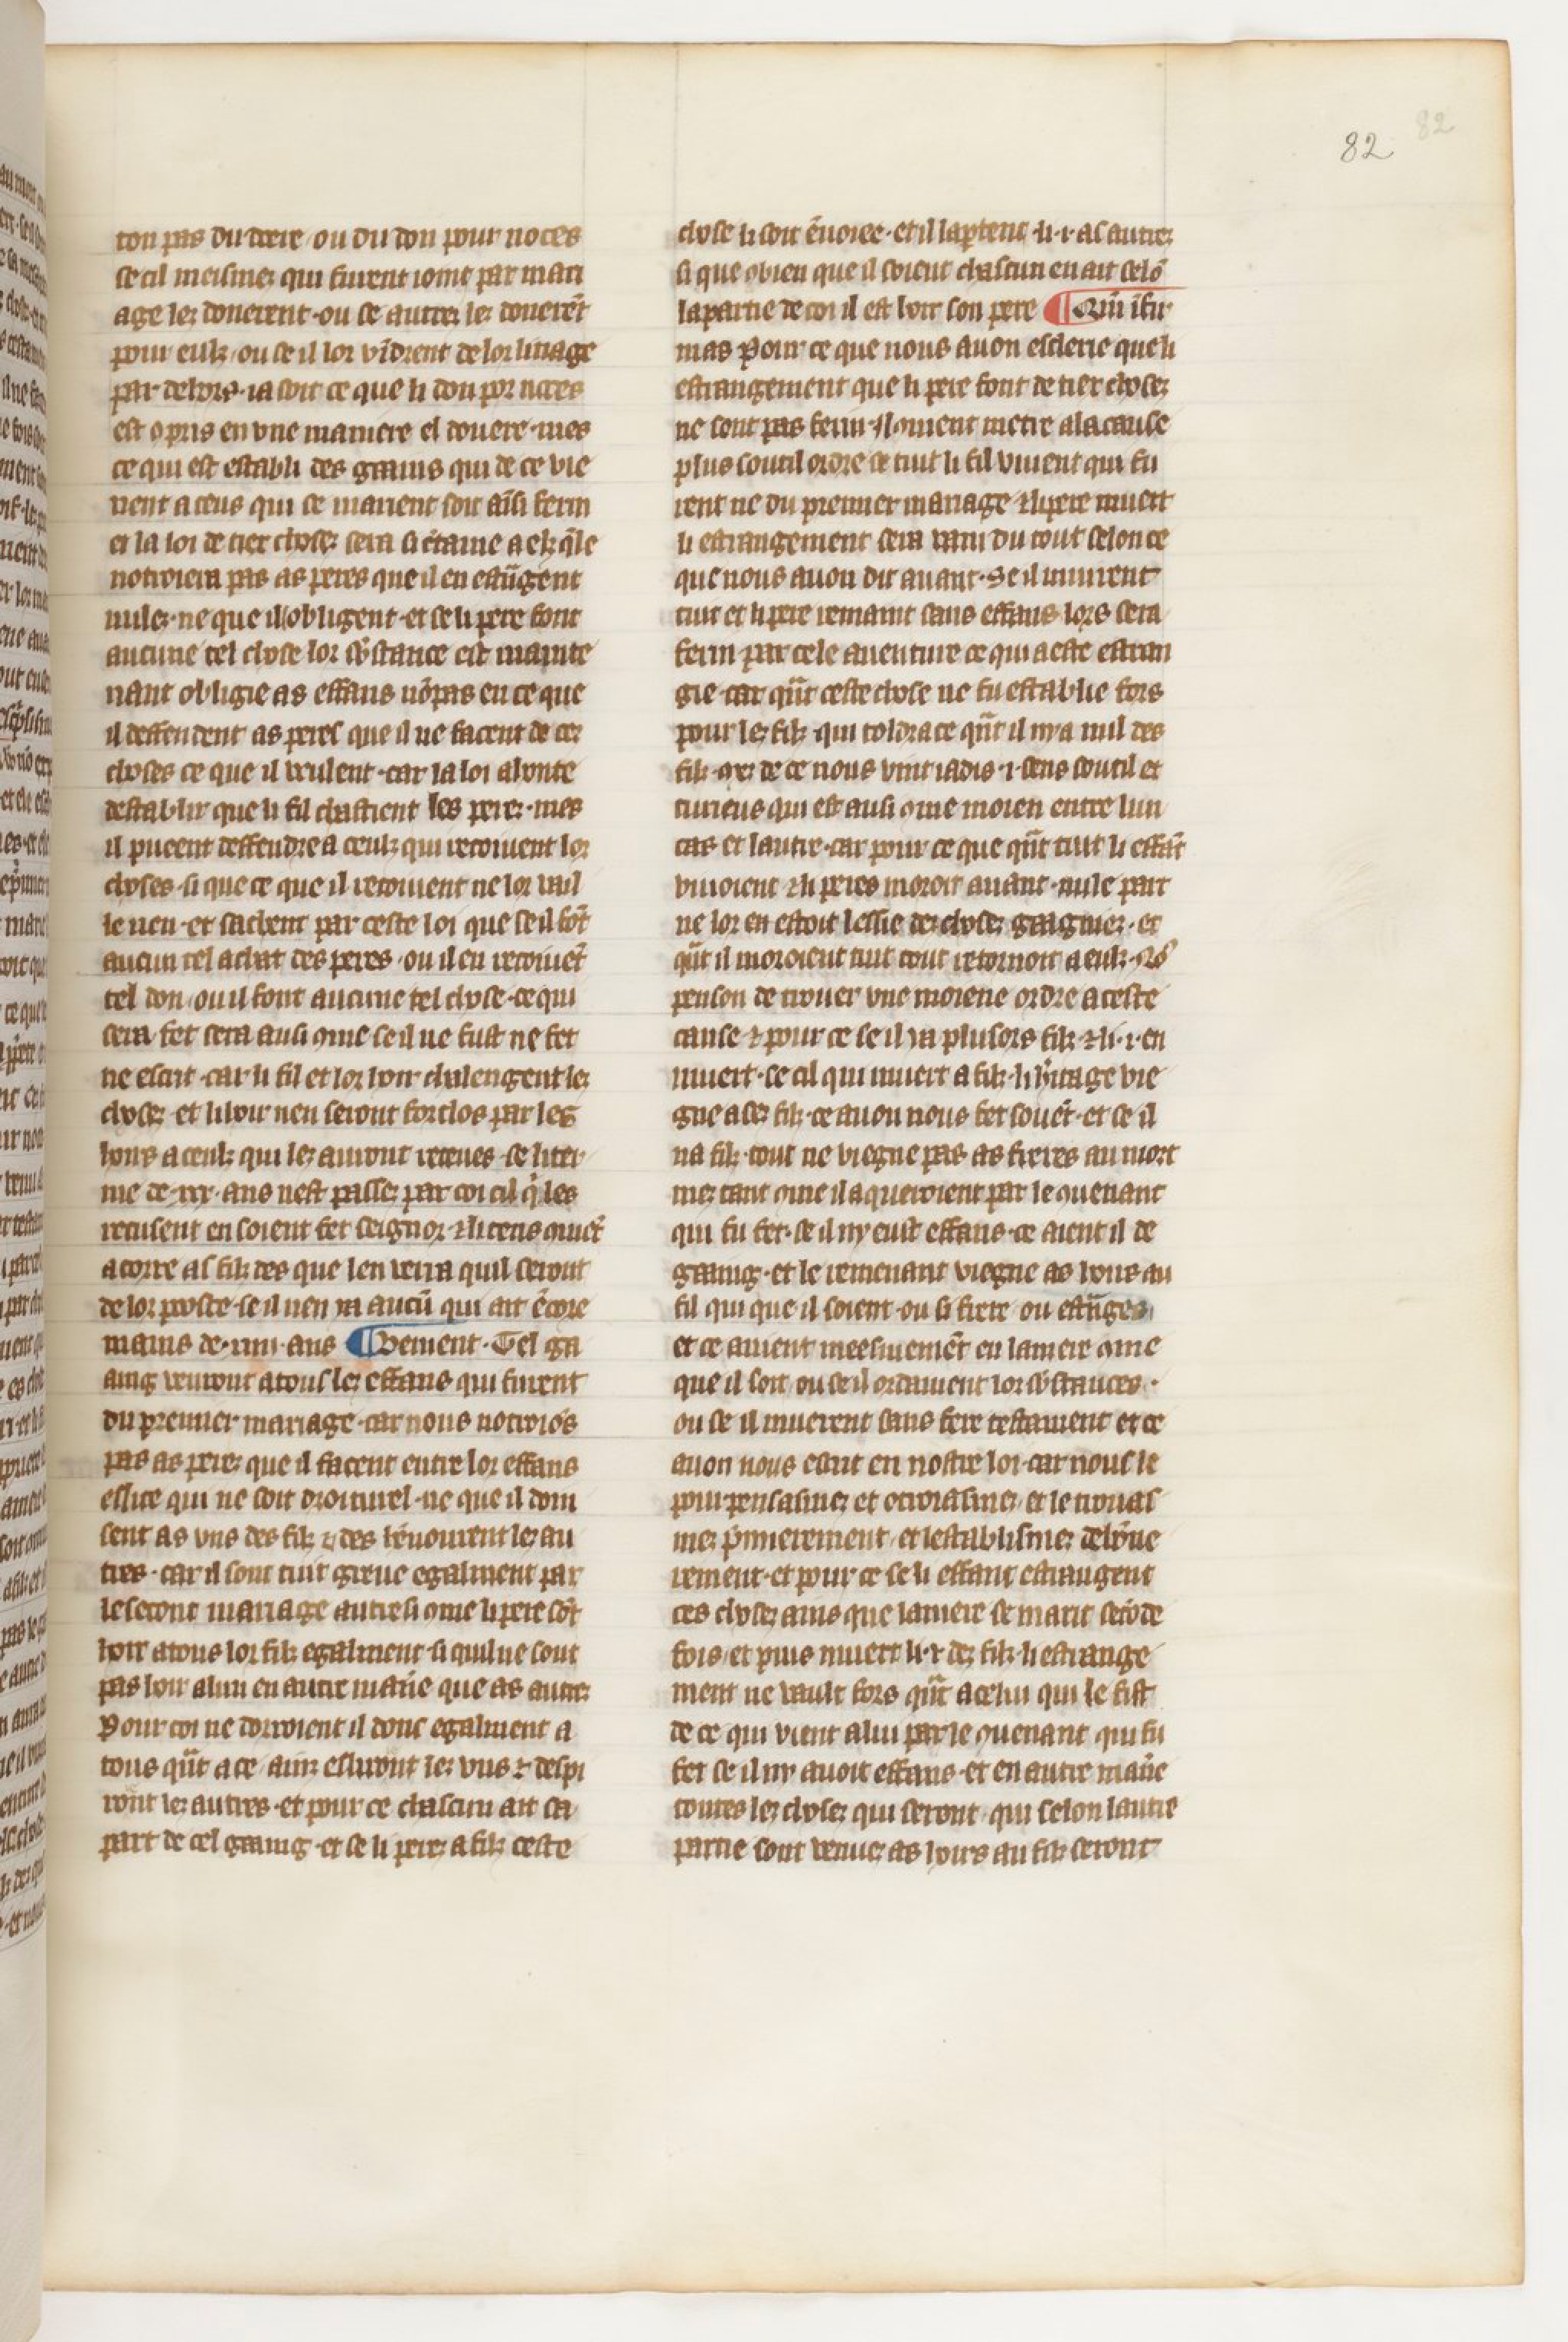 82
82
ton pas du doere ou du don pour noces
se cil meismez qui furent ioint par mari
age lez donerent · ou se autrez lez donerēt
pour eulz ou se il lor vīdrent de lor linage
par dehors · ia soit ce que li don por noces
est opris en vne maniere el douere · mes
ce qui est establi des grains qui de ce vie
nent a ceus qui se marient soit aīsi ferm
et la loi de tiex chosez sera si
notroiera pas as peres que il en estrāgent
nulez · ne que il obligent · et se li pere font
aucune tel chose lor sb̄stance est mainte
nant obligie as effans nō pas en ce que
il deffendent as peres que il ne facent de cez
choses ce que il veulent · car la loi a honte
destablir que li fil chastient les perez · mes
il pueent deffendre a ceulz qui recoiuent lor
choses · si que ce que il recoiuent ne lor vail
le rien · et sachent par ceste loi que se il fōt
aucun tel achat des peres · ou il en recoiuēt
tel don / ou il font aucune tel chose · ce qui
sera fet sera ausi ꝯme se il ne fust ne fet
ne escrit · car li fil et lor hoir chalengent lez
chosez · et li hoir nen seront forclos par les
hons a ceulz qui lez auront retenes · se li ter
me de · xxx · ans nest passez par coi cil q̄ les
recusent en soient fet seignor ⁊ li cens
a corre as filz des que len verra quil seront
de lor poste · se il nen ia aucū qui ait ēcore
mains de · xiiii · ans ¶ Dement · Tel ga
aing venront a tous lez effans qui furent
du premier mariage · car nous notroiōs
pas as perez que il facent entre lor effans
eslite qui ne soit droiturel · ne que il doin
sent as vns des filz ⁊ des hēnourent lez au
tres · car il sont tuit greue egalment par
le secont mariage autresi ꝯme li pere sōt
hoir a tous lor filz egalment · si quil ne sont
pas hoir a lun en autre manie que as autrez
Pour coi ne dorroient il donc egalment a
tous qūt a ce / ainz esliront lez vns ⁊ despi
ront lez autres · et pour ce chascun ait sa
part de cel graing · et se li perez a filz ceste
chose li soit ēuoiee · et il lapartenent · li · i · as autrez
si que obien que il soient chascun en ait selō
la partie de coi il est hoir son pere ¶
mas Pour ce que nous auon esclerie que li
estrangement que li pere font de tiex chosez
ne sont pas ferm · Il ꝯuient metre a la cause
plus soutil ordre ce tuit li fil viuent qui fu
rent ne du premier mariage ⁊ li pere muert
li estrangement sera vain du tout selon ce
que nous auon dit auant · Se il muirent
tuit et li pere remaint sans effans lors sera
ferm par cele auenture ce qui a este estran
gie · car qūt ceste chose ne fu establie fors
pour lez filz · qui toldra ce qūt il nia nul des
filz · de ce nous vint iadis · i · sens soutil et
curieus qui est ausi ꝯme moien entre lun
cas et lautre · car pour ce que qūt tuit li effāt
viuoient ⁊ li peres moroit auant · nule part
ne lor en estoit lessie dez chosez graignier · et
qūt il moroient tuit tout retornoit a eulz · Nō
penson de trouer vne moiene ordre a ceste
cause ⁊ pour ce se il ia plusors filz ⁊ li · i · en
muert · se cil qui muert a filz · li h'itage vie
gne a sez filz · ce auon nous fet souēt · et se il
na filz · tout ne viegne pas as freres au mort
mez tant ꝯme il aqueroient par le ꝯuenant
qui fu fet · se il ny eust effans · ce aient il de
graaing · et le remenant viegne as hoirs au
fil qui que il soient · ou si frere ou estrāges
et ce auient meesmemēt en la mere ꝯme
que il soit / ou se il ordainent lor sb̄stances ·
ou se il muerent sans fere testament et ce
auon nous escrit en nostre loi · car nous le
pourpensasmez et otroiasmez / et le trouas
mez p̄mierement · et lestablismez
rement · et pour ce se li effant estrangent
ces chosez ains que la mere se marit secōde
fois / et puis muert li · i · dez filz · li estrange
ment ne vault fors qūt a celui qui le fist
de ce qui vient a lui par le ꝯuenant qui fu
fet se il ny auoit effans · et en autre maīe
toutes lez chosez qui seront qui selon lautre
partie sont venuez as hoirs au filz seront